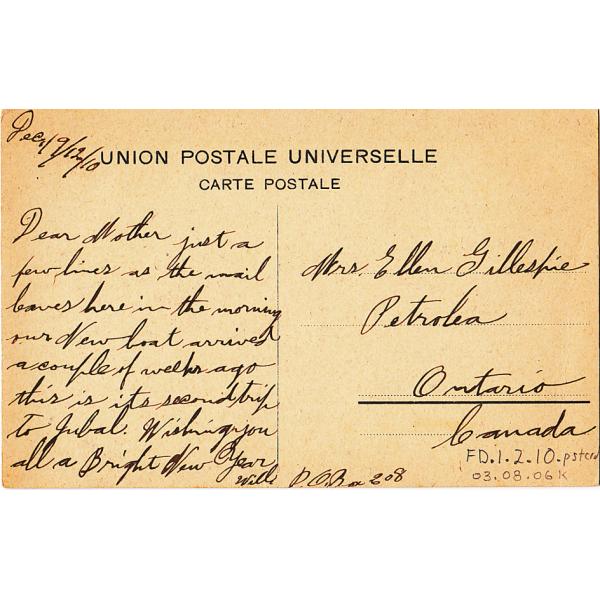 Dec 19/12/10
UNION POSTALE UNIVERSELLE
CARTE POSTALE
Dear Mother just a
few lines as the mail
leaves here in the morning
our New boat arrived
a couple of weeks ago
this is its second trip
to Jubal. Wishing you
all a Bright New Year
Will
P.O. Box 208
Mrs. Ellen Gillespie
Petrolea
Ontario
Canada
FD.1.2.10.pstcrd
03.08.06K